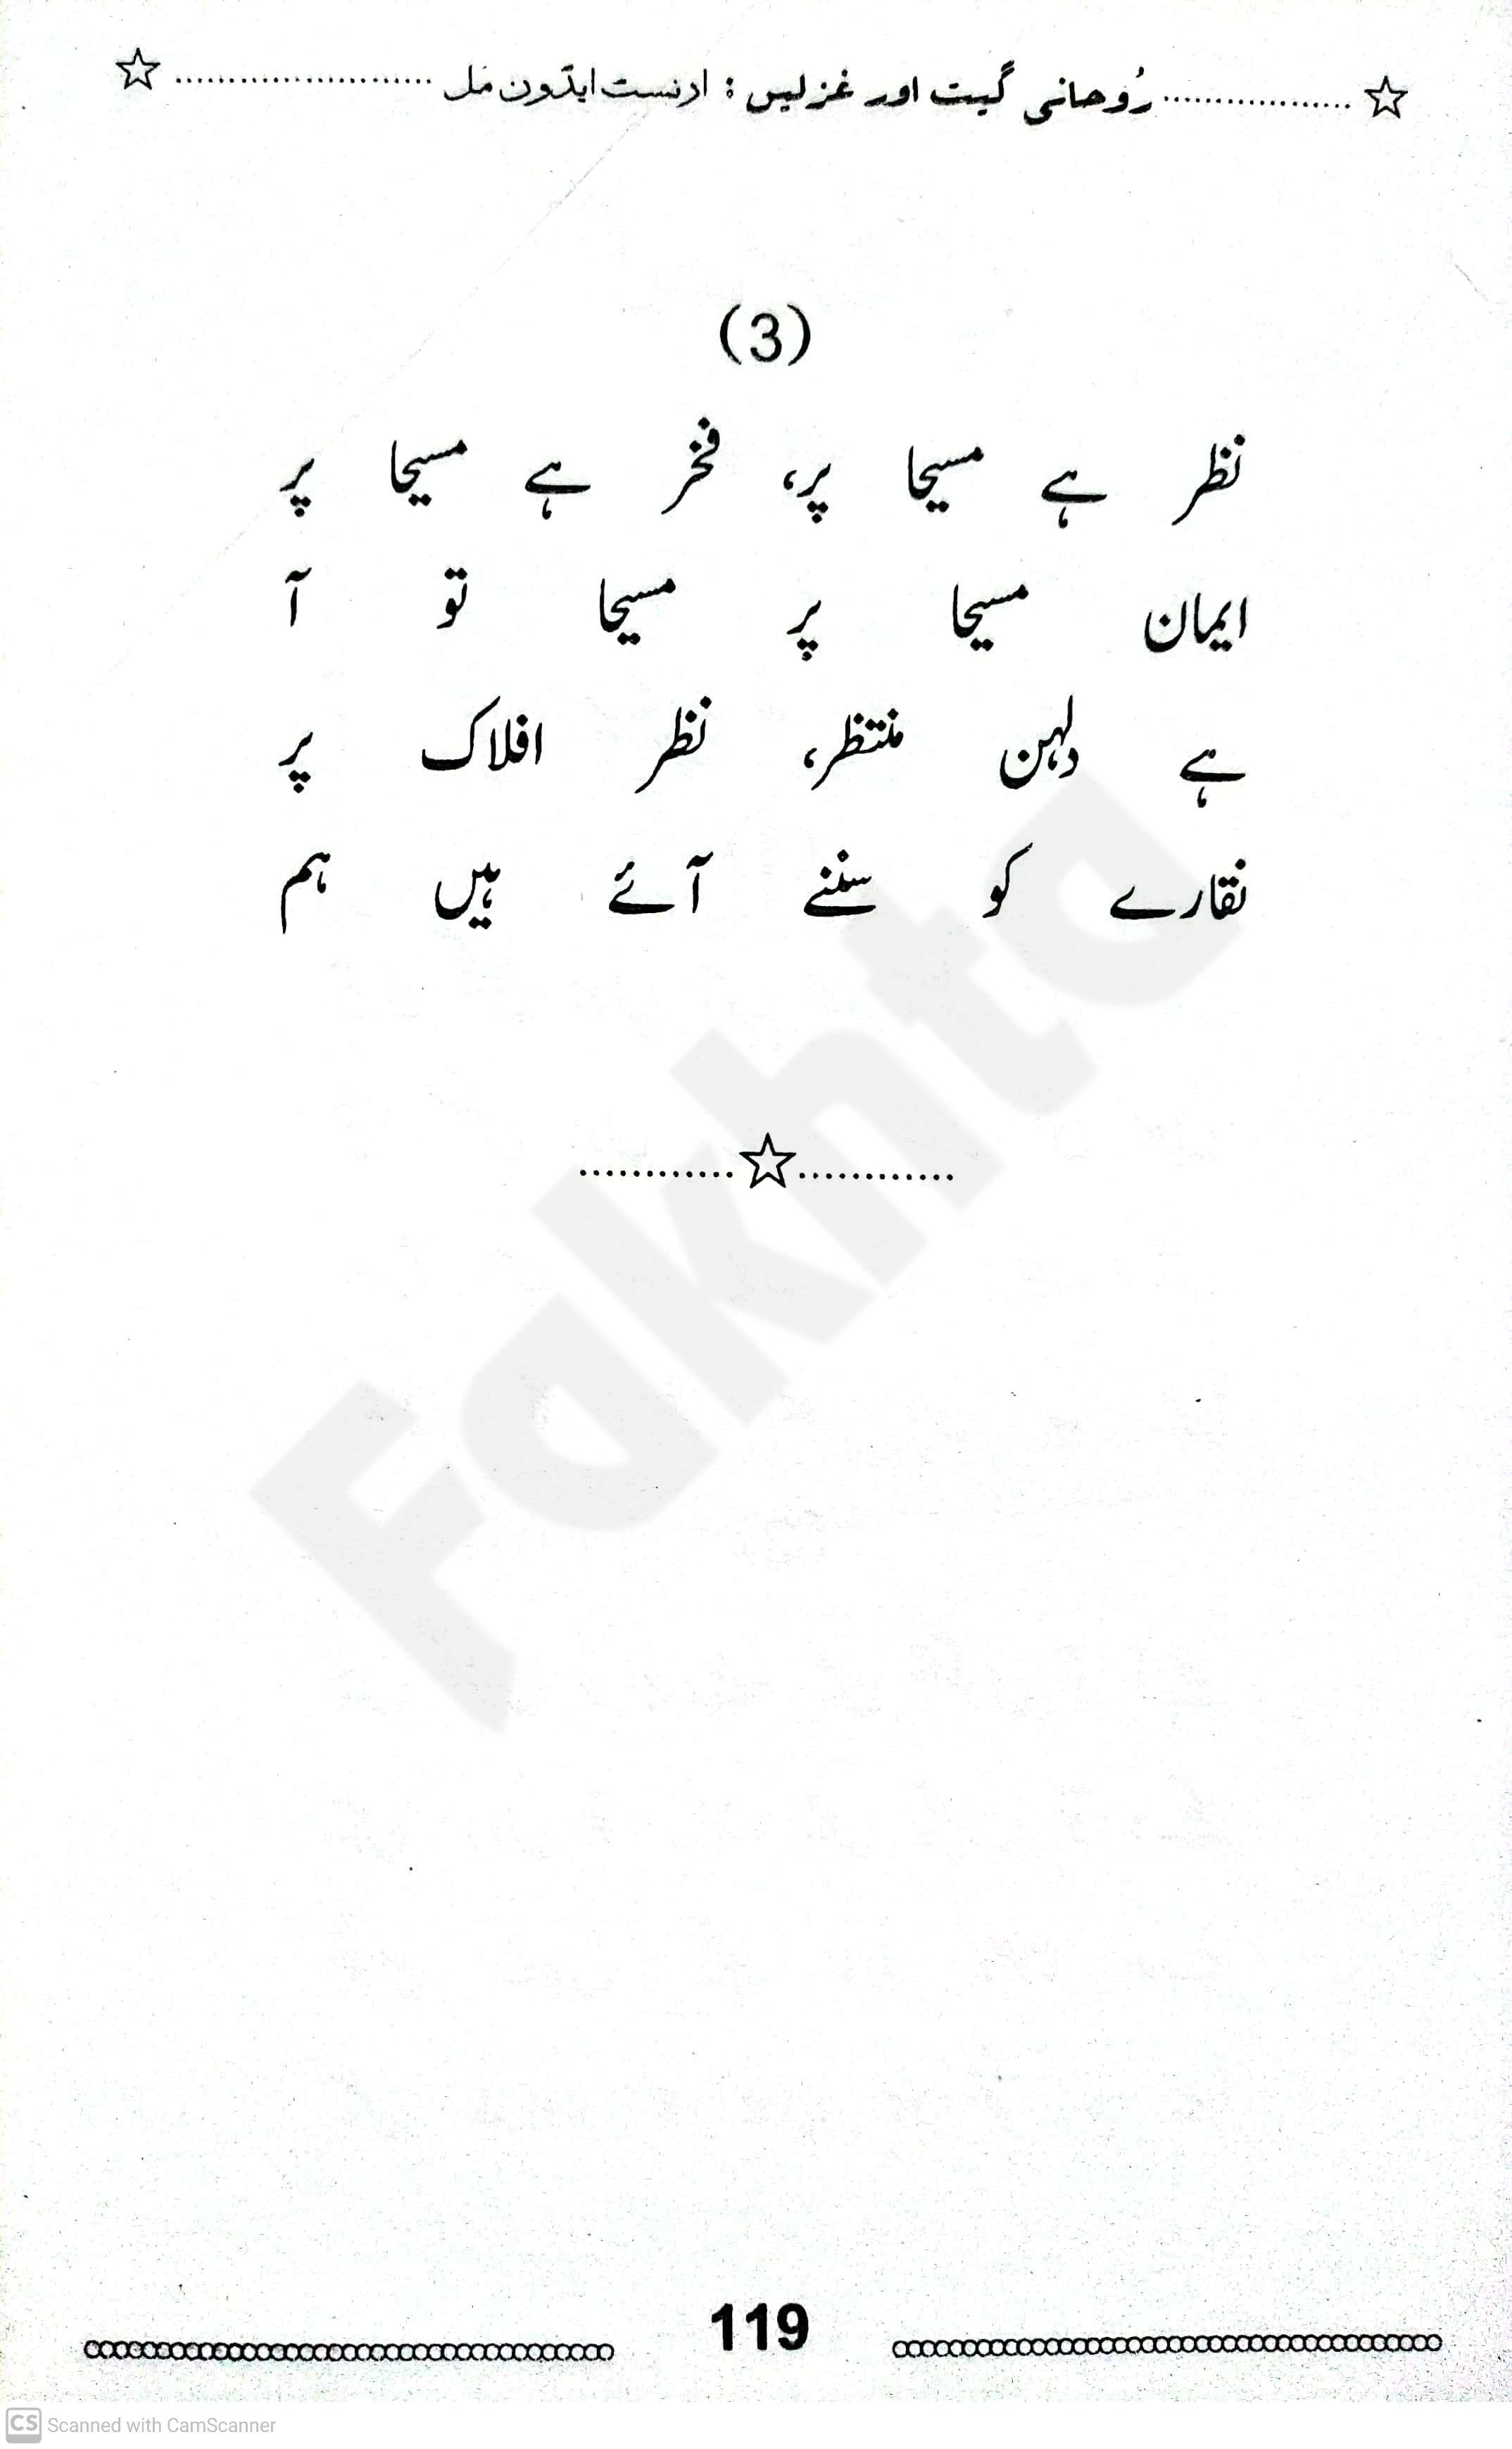 ☆..................رُوحانی گیت اور غزلیں : ارنسٹ ایڈون مل........................☆
(3)
نظر ہے مسیحا پر، فخر ہے مسیحا پر
ایمان مسیحا پر مسیحا تو آ
ہے دلہن منتظر، نظر افلاک پر
نقارے کو سننے آئے ہیں ہم
............☆............
119
Fakhta
CS Scanned with CamScanner